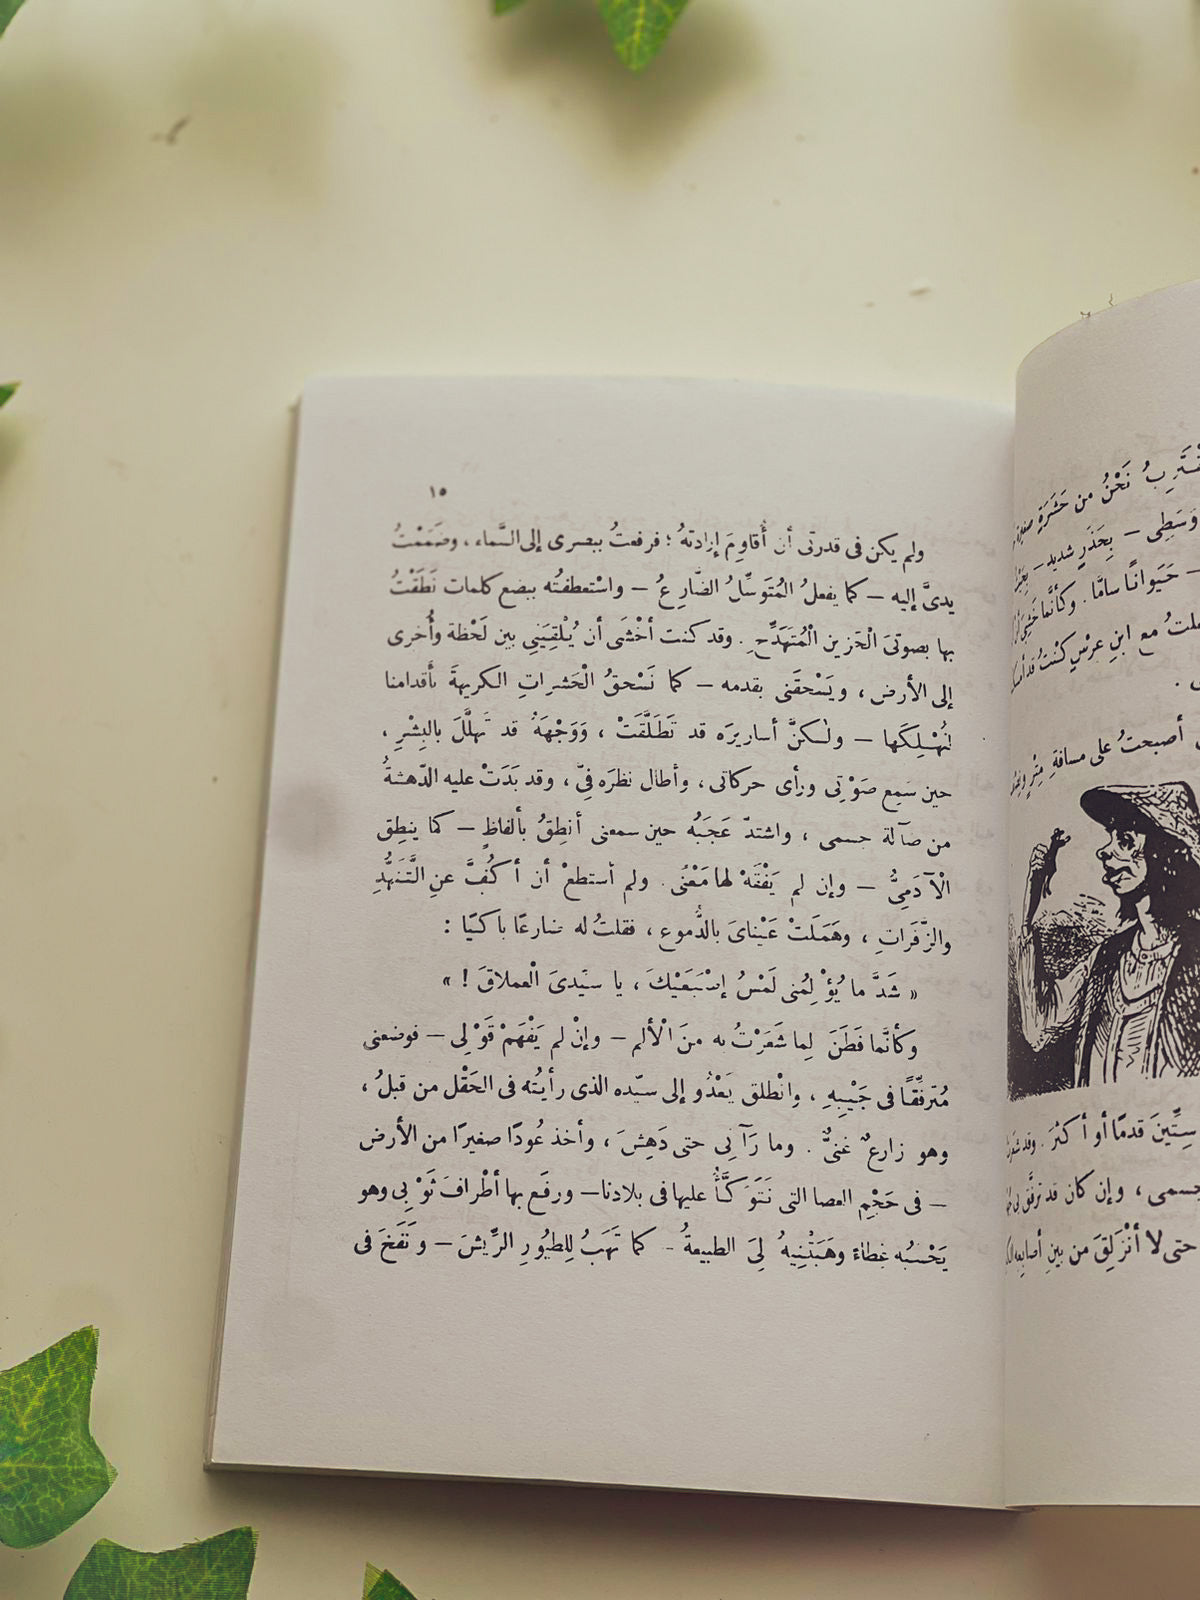 ١٥
ولم يكن فى قدرتى أن أُقاوِمَ إرادتهُ ؛ فرفعتُ ببصرى إلى السَّماء ، وضَمَمْتُ
يدىَّ إليه – كما يفعلُ المُتَوَسِّلُ الضَّارِعُ – واسْتعطفتُه ببضع كلمات نَطَقْتُ
بها بصوتىَ الْحَزين الْمُتَهَدِّجِ . وقد كنت أخْشَى أن يُلْقِيَنِى بين لَحْظة وأُخرى
إلى الأرض ، ويَسْحقَنى بقدمه – كما نَسْحقُ الْحَشراتِ الكريهةَ بأقدامنا
لنُهْلِكَها – ولٰكنَّ أساريرَه قد تَطَلَّقَتْ ، وَوَجْهَهُ قد تَهلَّلَ بالبِشْرِ ،
حين سَمِع صَوْتِى ورأى حركاتى ، وأطال نظرَه فِىَّ ، وقد بَدَتْ عليه الدّهشةُ
من ضآلة جسمى ، واشتدّ عَجَبُه حين سمعنى أنطِقُ بألفاظٍ – كما ينطِق
الْآدَمِىُّ – وإن لم يَفْقَهْ لها مَعْنًى . ولم أستطعْ أن أكُفَّ عنِ التَّنَهُّدِ
والزَّفَراتِ ، وهَمَلَتْ عَيْنَاىَ بالدُّموع ، فقلتُ له ضارعًا باكيًا :
« شَدَّ ما يُؤْلِمُنى لَمْسُ إصْبَعَيْكَ ، يا سيِّدىَ الْعملاقَ ! »
وكأنَّما فَطَنَ لِما شَعَرْتُ به منَ الْألم – وإنْ لم يَفْهَمْ قَوْلِى – فوضعنى
مُترفِّقًا فى جَيْبِهِ ، وانْطلق يَعْدُو إلى سيّده الذى رأيتُه فى الحَقْل من قبلُ ،
وهو زارعٌ غنىٌّ . وما رَآنِى حتى دَهِشَ ، وأخذ عُودًا صغيرًا من الأرض
– فى حَجْمِ العصا التى نَتَوَكَّأُ عليها فى بلادنا – ورفَع بها أطْرافَ ثَوْبِى وهو
يَحْسبُه غِطاءً وهَبَتْنِيهُ لِىَ الطبيعةُ – كما تَهَبُ لِلطيُورِ الرِّيشَ – ونَفَخَ فى
نَحْنُ من حَشَرَةٍ
وَسَطِى – بِحَذَرٍ شديد –
– حَيَوانًا سامًّا . وكأنَّما
مع ابنِ عرْسٍ كنْتُ قد
أصبحتُ على مسافةِ مِتْرٍ
سِتِّينَ قدمًا أو أكثرَ . وقد
جسمى ، وإن كان قد ترفَّقَ بى
حتى لا أنْزَلِقَ من بينِ أصابعِه